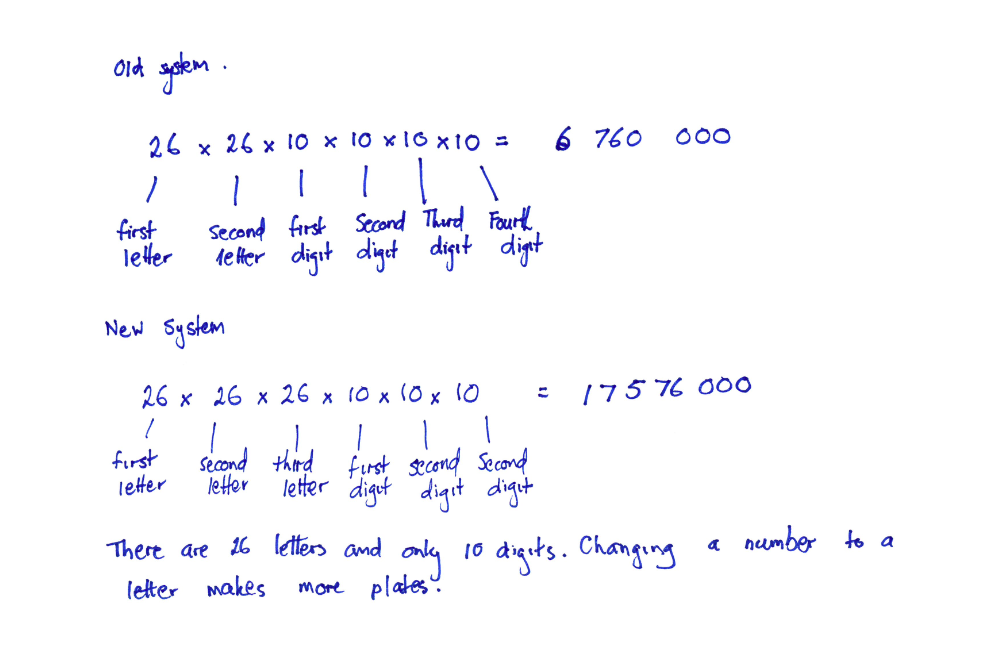 Old system.
26 × 26 × 10 × 10 × 10 × 10 = 6 760 000
first second first Second Third Fourth
letter letter digit digit digit digit
New System
26 × 26 × 26 × 10 × 10 × 10 = 17 576 000
first second third first second Second
letter letter letter digit digit digit
There are 26 letters and only 10 digits. Changing a number to a
letter makes more plates.